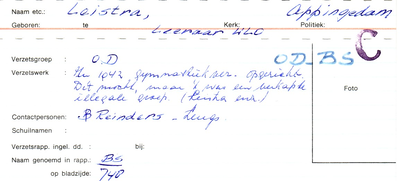 Naam etc.: Leistra, Appingedam
Geboren: te Kerk: Politiek:
Leeraar ULO
C
Verzetsgroep : O.D OD-BS
Verzetswerk : In 1942 gymnastiekver. opgericht.
Dit mocht, maar 't was een verkapte
illegale groep. (
Foto
Contactpersonen: B Reinders -
Schuilnaam :
Verzetsrapp. ingel. dd. : bij:
Naam genoemd in rapp.: BS
op bladzijde: 740